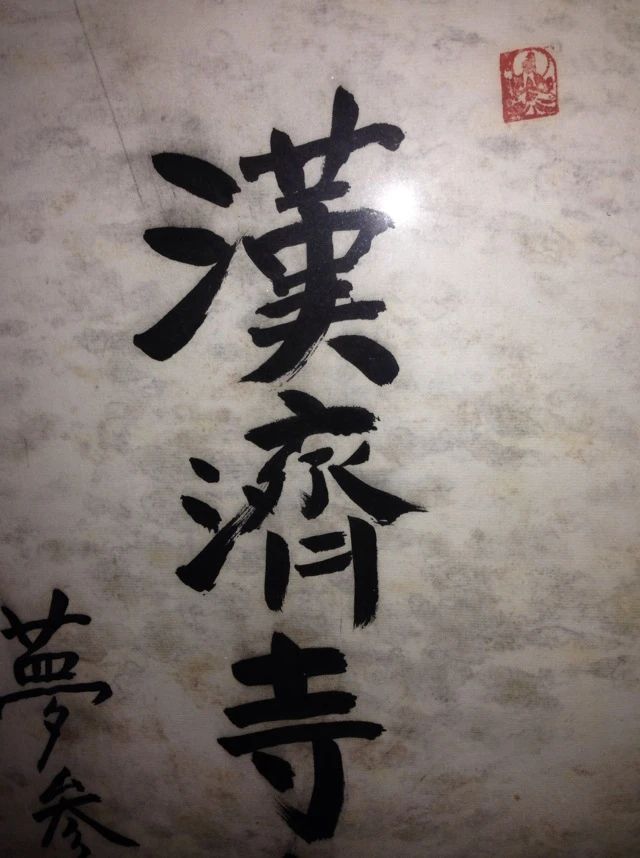 漢濟寺
夢參